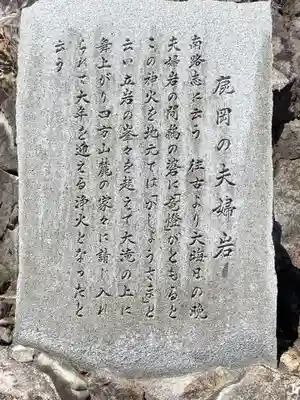 鹿岡の夫婦岩
南路志に云う 往古より大晦日の晩
夫婦岩の間鵜の碆に「竜燈」がともると
この神火を地元では「がしょうさま」と
云い立岩の峯々を越えて大滝の上に
舞上がり四方山麓の家々に請じ入れ
られて大年を迎える浄火となったと
云う